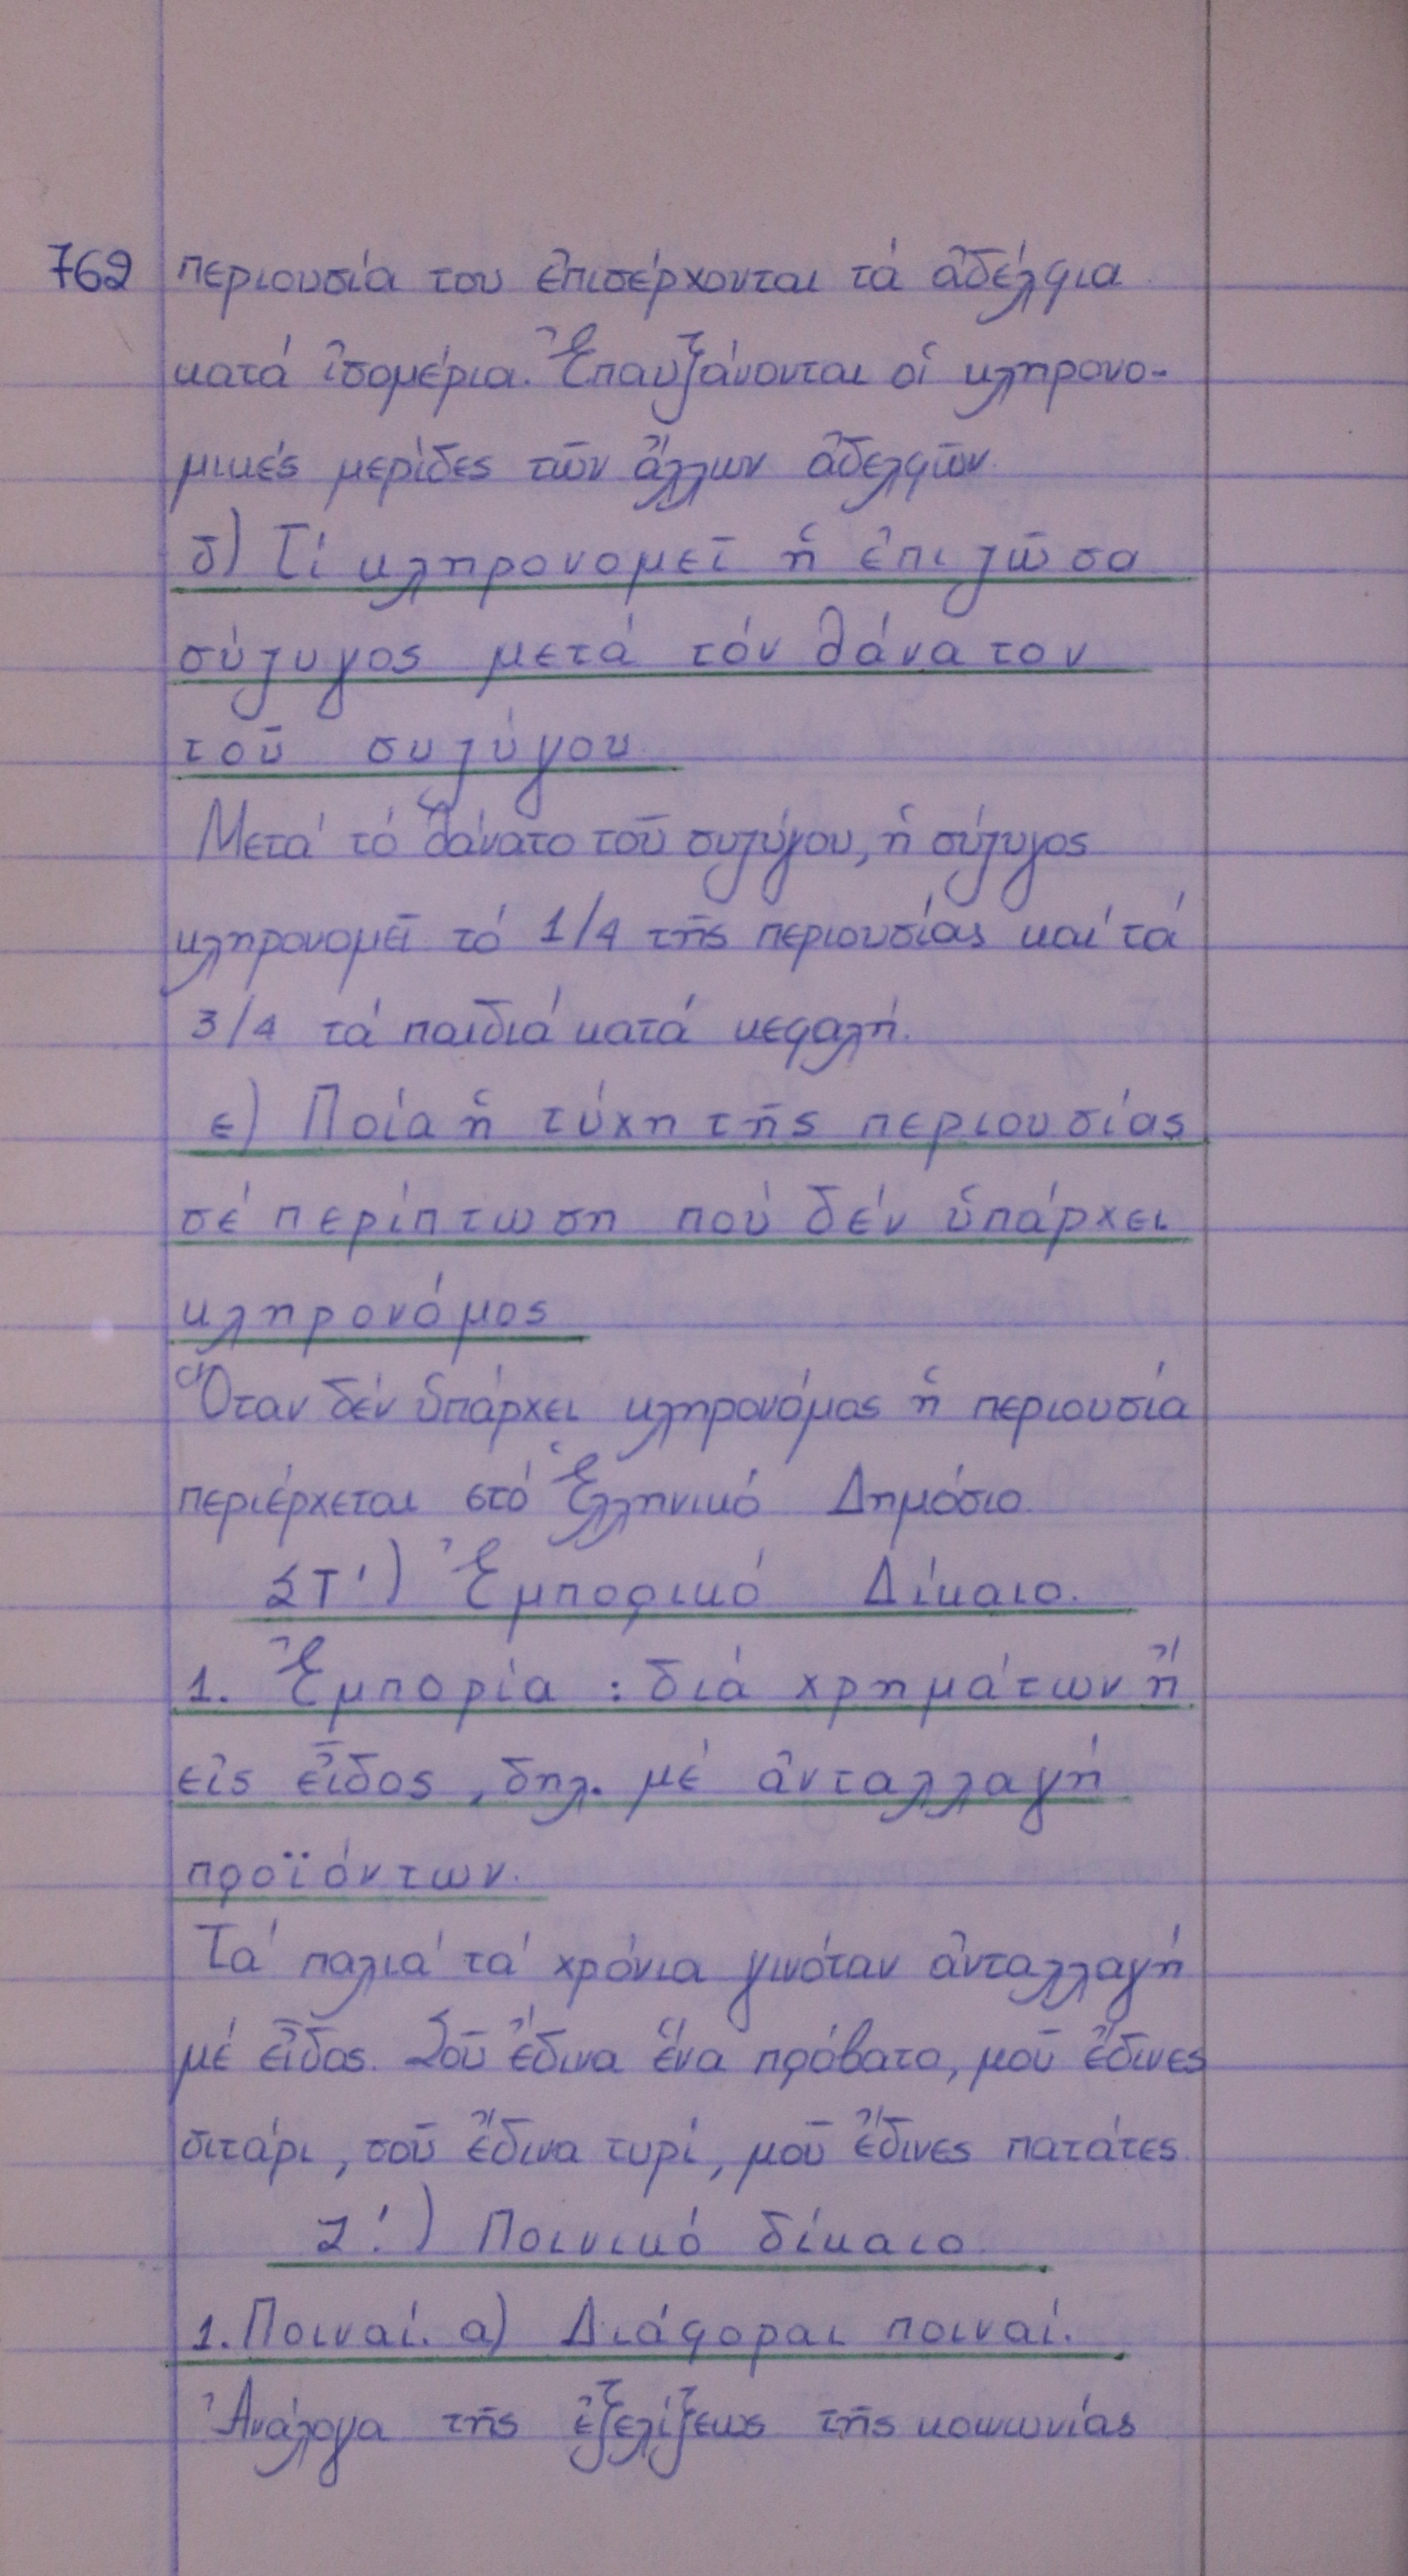 762 περιουσία του ἐπισέρχονται τά ἀδέλφια
κατά ἰσομέρια. Ἐπαυξάνονται οἱ κληρονο-
μικές μερίδες τῶν ἄλλων ἀδελφῶν.
δ) Τί κληρονομεῖ ἡ ἐπιζῶσα
σύζυγος μετά τόν θάνατον
τοῦ συζύγου
Μετά τό θάνατο τοῦ συζύγου, ἡ σύζυγος
κληρονομεῖ τό 1/4 τῆς περιουσίας καί τά
3/4 τά παιδιά κατά κεφαλή.
ε) Ποία ἡ τύχη τῆς περιουσίας
σέ περίπτωση πού δέν ὑπάρχει
κληρονόμος
Ὅταν δέν ὑπάρχει κληρονόμος ἡ περιουσία
περιέρχεται στό Ἑλληνικό Δημόσιο.
ΣΤ') Ἐμπορικό Δίκαιο.
1. Ἐμπορία : διά χρημάτων ἤ
εἰς εἶδος, δηλ. μέ ἀνταλλαγή
προϊόντων.
Τά παλιά τά χρόνια γινόταν ἀνταλλαγή
μέ εἶδος. Σοῦ ἔδινα ἕνα πρόβατο, μοῦ ἔδινες
σιτάρι, σοῦ ἔδινα τυρί, μοῦ ἔδινες πατάτες.
Ζ'.) Ποινικό δίκαιο.
1. Ποιναί. α) Διάφοραι ποιναί.
Ἀνάλογα τῆς ἐξελίξεως τῆς κοινωνίας